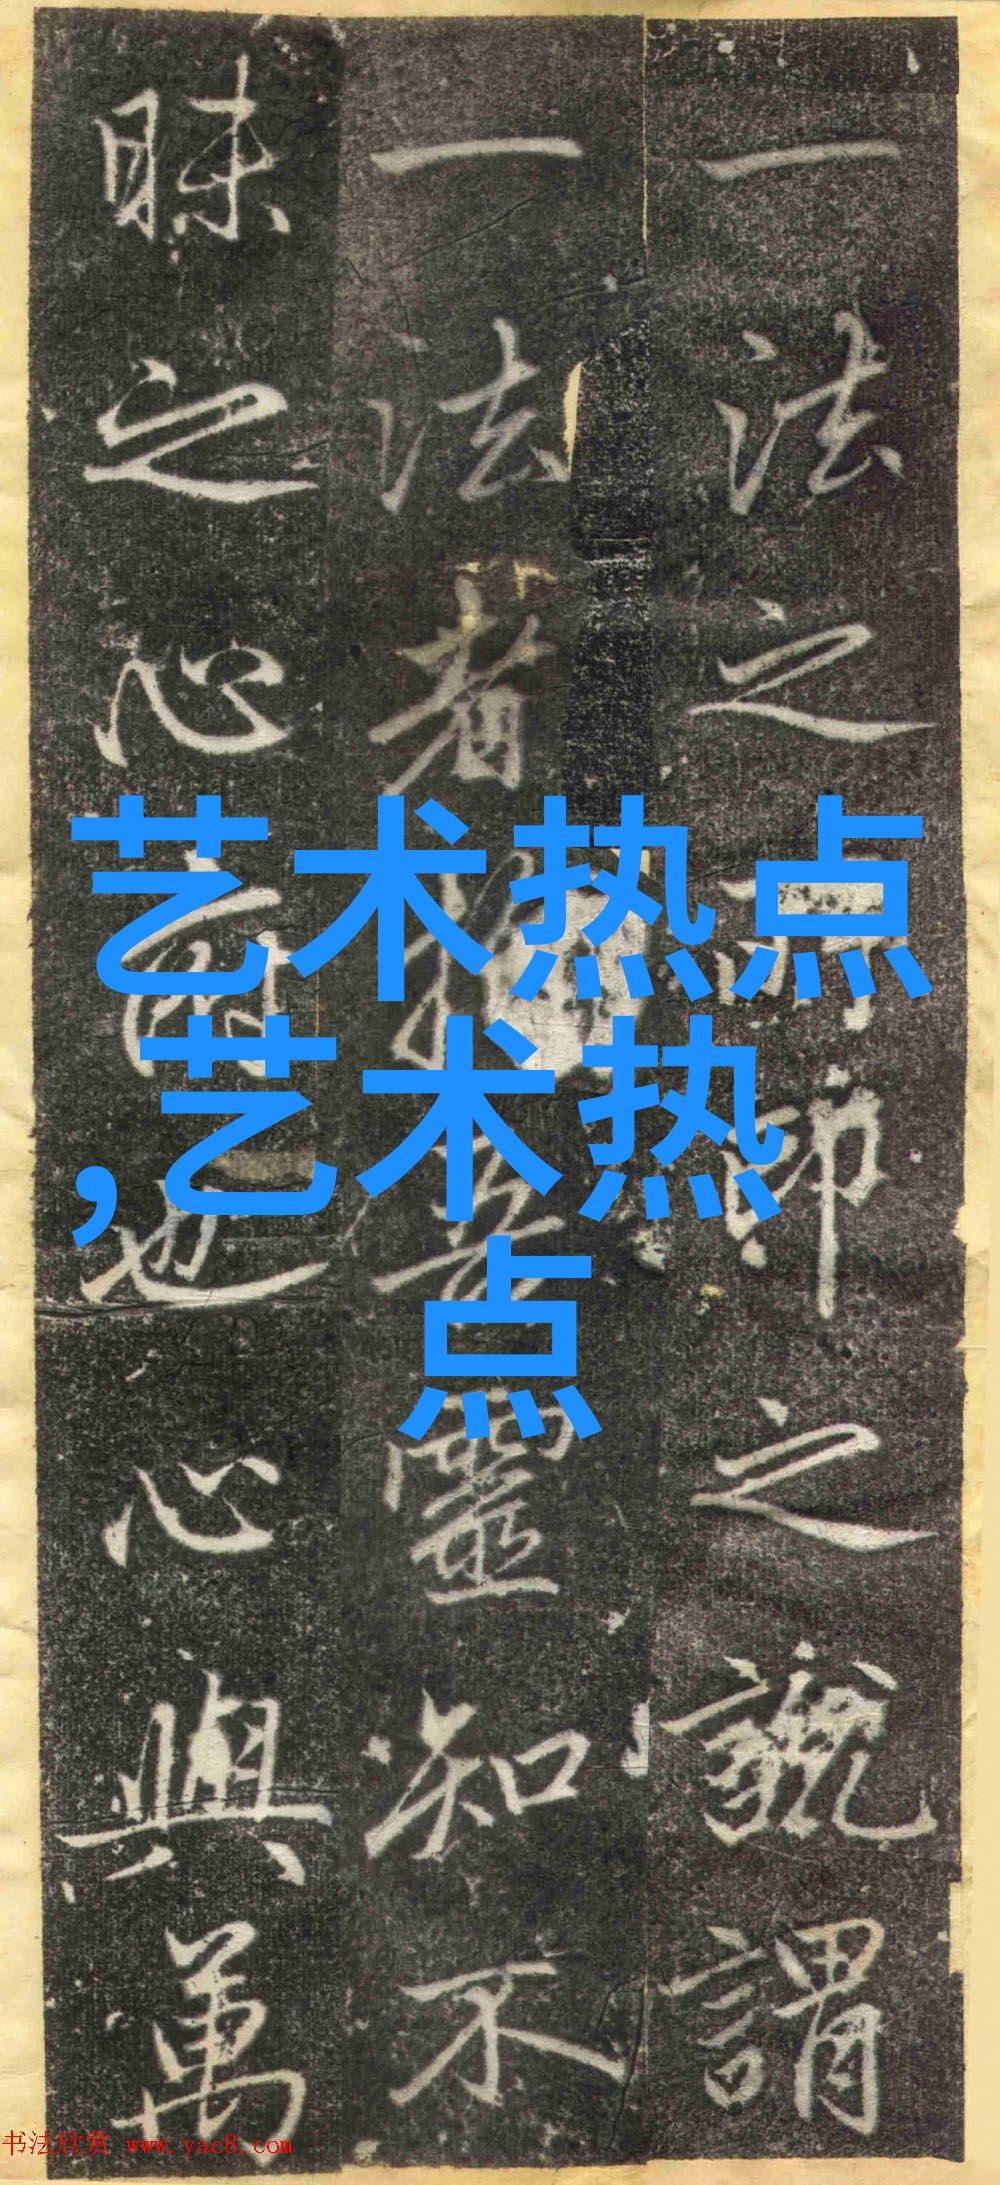 一法之
師之號謂
一法者
靈知不
昧之心
也心與萬
艺术热点
,艺术热
点
书法欣赏 www.yac8.com